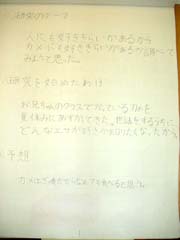 研究のテーマ
人にも好ききらいがあるから
カメにも好ききらいがあるか調べて
みようと思った。
研究を始めたわけ
お兄ちゃんのクラスでかっているカメを
夏休みにあずかってきた。世話をするうちに
どんなエサが好きか知りたくなったから。
予想
カメはざっ食だからなんでも食べると思う。